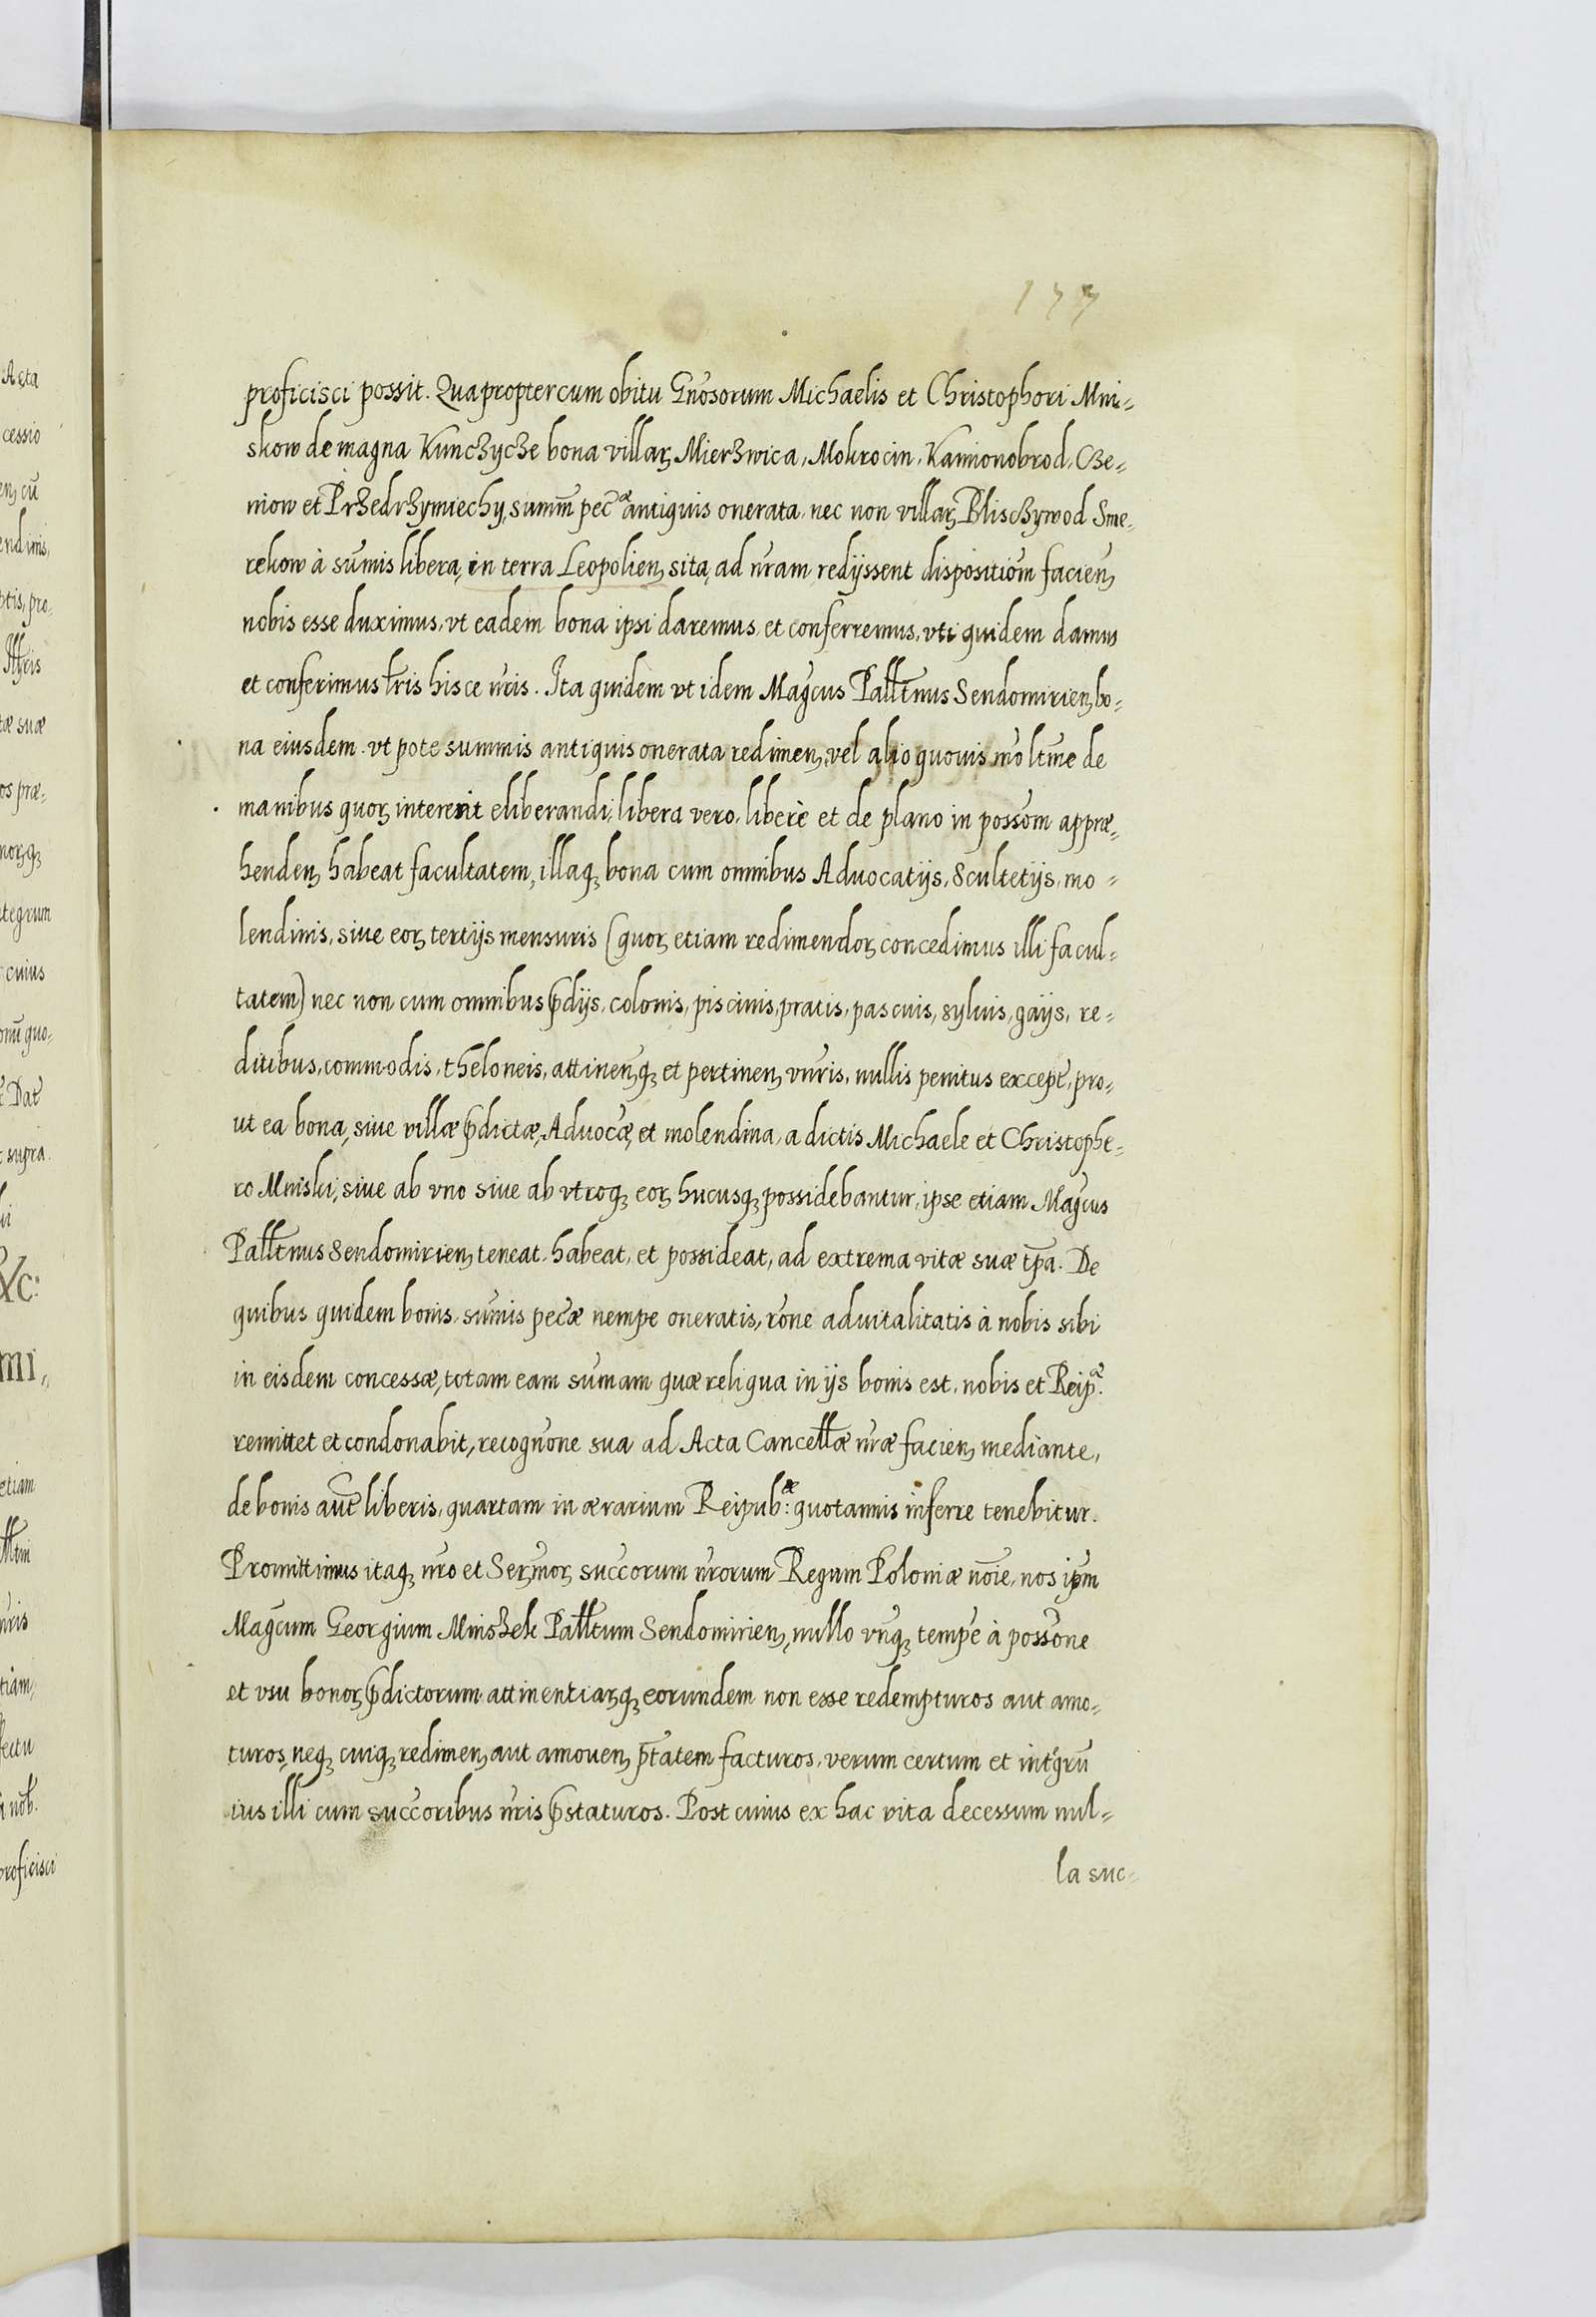 177
proficisci possit. Quapropter cum obitu Gñosorum Michaelis et Christophori Mni⸗
skow de magna Kunczycze bona villarꝫ Mierzwica, Mokrocin, Kamionobrod, Cze⸗
niow et Przedrzymiechy, sum̃m pec̃æ antiquis onerata, nec non villarꝫ Blisczywod Sme⸗
rekow à sum̃is libera, in terra Leopolienꝫ sita, ad nr̃am redijssent disposition̄m facienꝫ
nobis esse duximus, vt eadem bona ipsi daremus et conferremus, vti quidem damus
et conferimus lr̃is hisce nr̃is. Ita quidem vt idem Mag̃cus Pałłtnus Sendomirienꝫ bo⸗
na eiusdem vt pote summis antiquis onerata redimenꝫ, vel alio quouis mõ ltm̃e de
manibus quorꝫ intererit eliberandi, libera vero, liberè et de plano in possom̃ appræ⸗
hendenꝫ habeat facultatem, illaqꝫ bona cum omnibus Aduocatijs, Scultetijs, mo⸗
lendinis, siue eorꝫ tertijs mensuris (quorꝫ etiam redimendorꝫ concedimus illi facul⸗
tatem) nec non cum omnibus p̃dijs, colonis, piscinis, pratis, pascuis, syluis, gaijs, re⸗
ditibus, commodis, theloneis, attinenꝫqꝫ et pertinenꝫ vnr̃is, nullis penitus except̃, pro⸗
ut ea bona, siue villæ p̃dictæ, Aduoc̃æ, et molendina, a dictis Michaele et Christopho⸗
ro Mniski, siue ab vno siue ab vtroqꝫ eorꝫ hucusqꝫ possidebantur, ipse etiam Mag̃cus
Pałłtnus Sendomirienꝫ teneat, habeat, et possideat, ad extrema vitæ suæ tp̃a. De
quibus quidem bonis, sum̃is pec̃æ nempe oneratis, rõne aduitalitatis à nobis sibi
in eisdem concessæ, totam eam sum̃am quæ reliqua in ijs bonis est, nobis et Reip:æ
remittet et condonabit, recogñone sua ad Acta Cancełłæ nr̃æ facienꝫ mediante,
de bonis aut̃e liberis, quartam in ærarium Reipub:æ quotannis inferre tenebitur.
Promittimus itaqꝫ nr̃o et Serm̃orꝫ succorum nr̃orum Regum Poloniæ nõie, nos ip̃m
Mag̃cum Georgium Mniszek Pałłtum Sendomirienꝫ, nullo vn̄qꝫ temp̃e à possõne
et vsu bonorꝫ p̃dictorum attinentiarꝫqꝫ eorundem non esse redempturos aut amo⸗
turos, neqꝫ cuiqꝫ redimenꝫ aut amouenꝫ p̃tatem facturos, verum certum et int̃grũ
ius illi cum succoribus nr̃is p̃staturos. Post cuius ex hac vita decessum nul⸗
la suc⸗